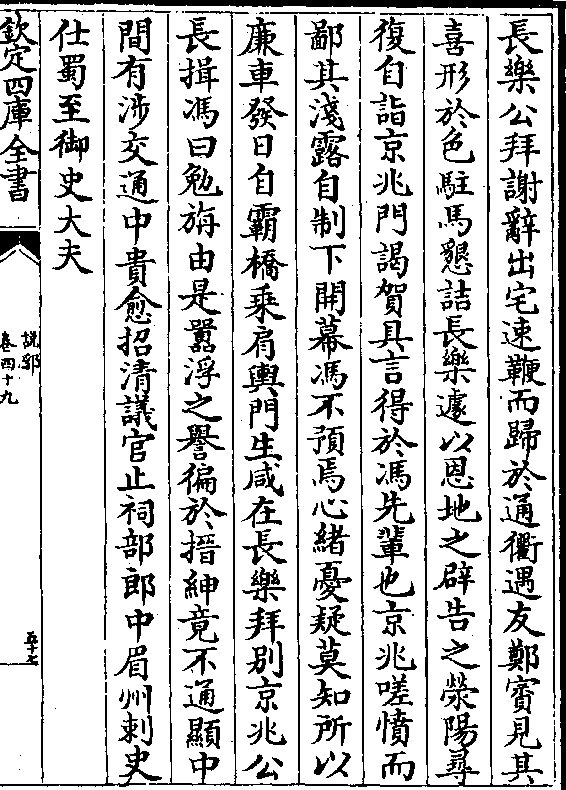 長樂公拜謝辭出宅速鞭而歸於通衢遇友鄭賨見其
喜形於色駐馬懇詰長樂遽以恩地之辟告之滎陽尋
復自詣京兆門謁賀具言得於馮先輩也京兆嗟憤而
鄙其淺露自制下開幕馮不預焉心緒憂疑莫知所以
廉車發日自霸橋乘肩輿門生咸在長樂拜別京兆公
長揖馮曰勉旃由是囂浮之譽徧於搢紳竟不通顯中
間有涉交通中貴愈招清議官止祠部郎中眉州刺史
仕蜀至御史大夫
欽定四庫全書
說郛
卷四十九
五十七